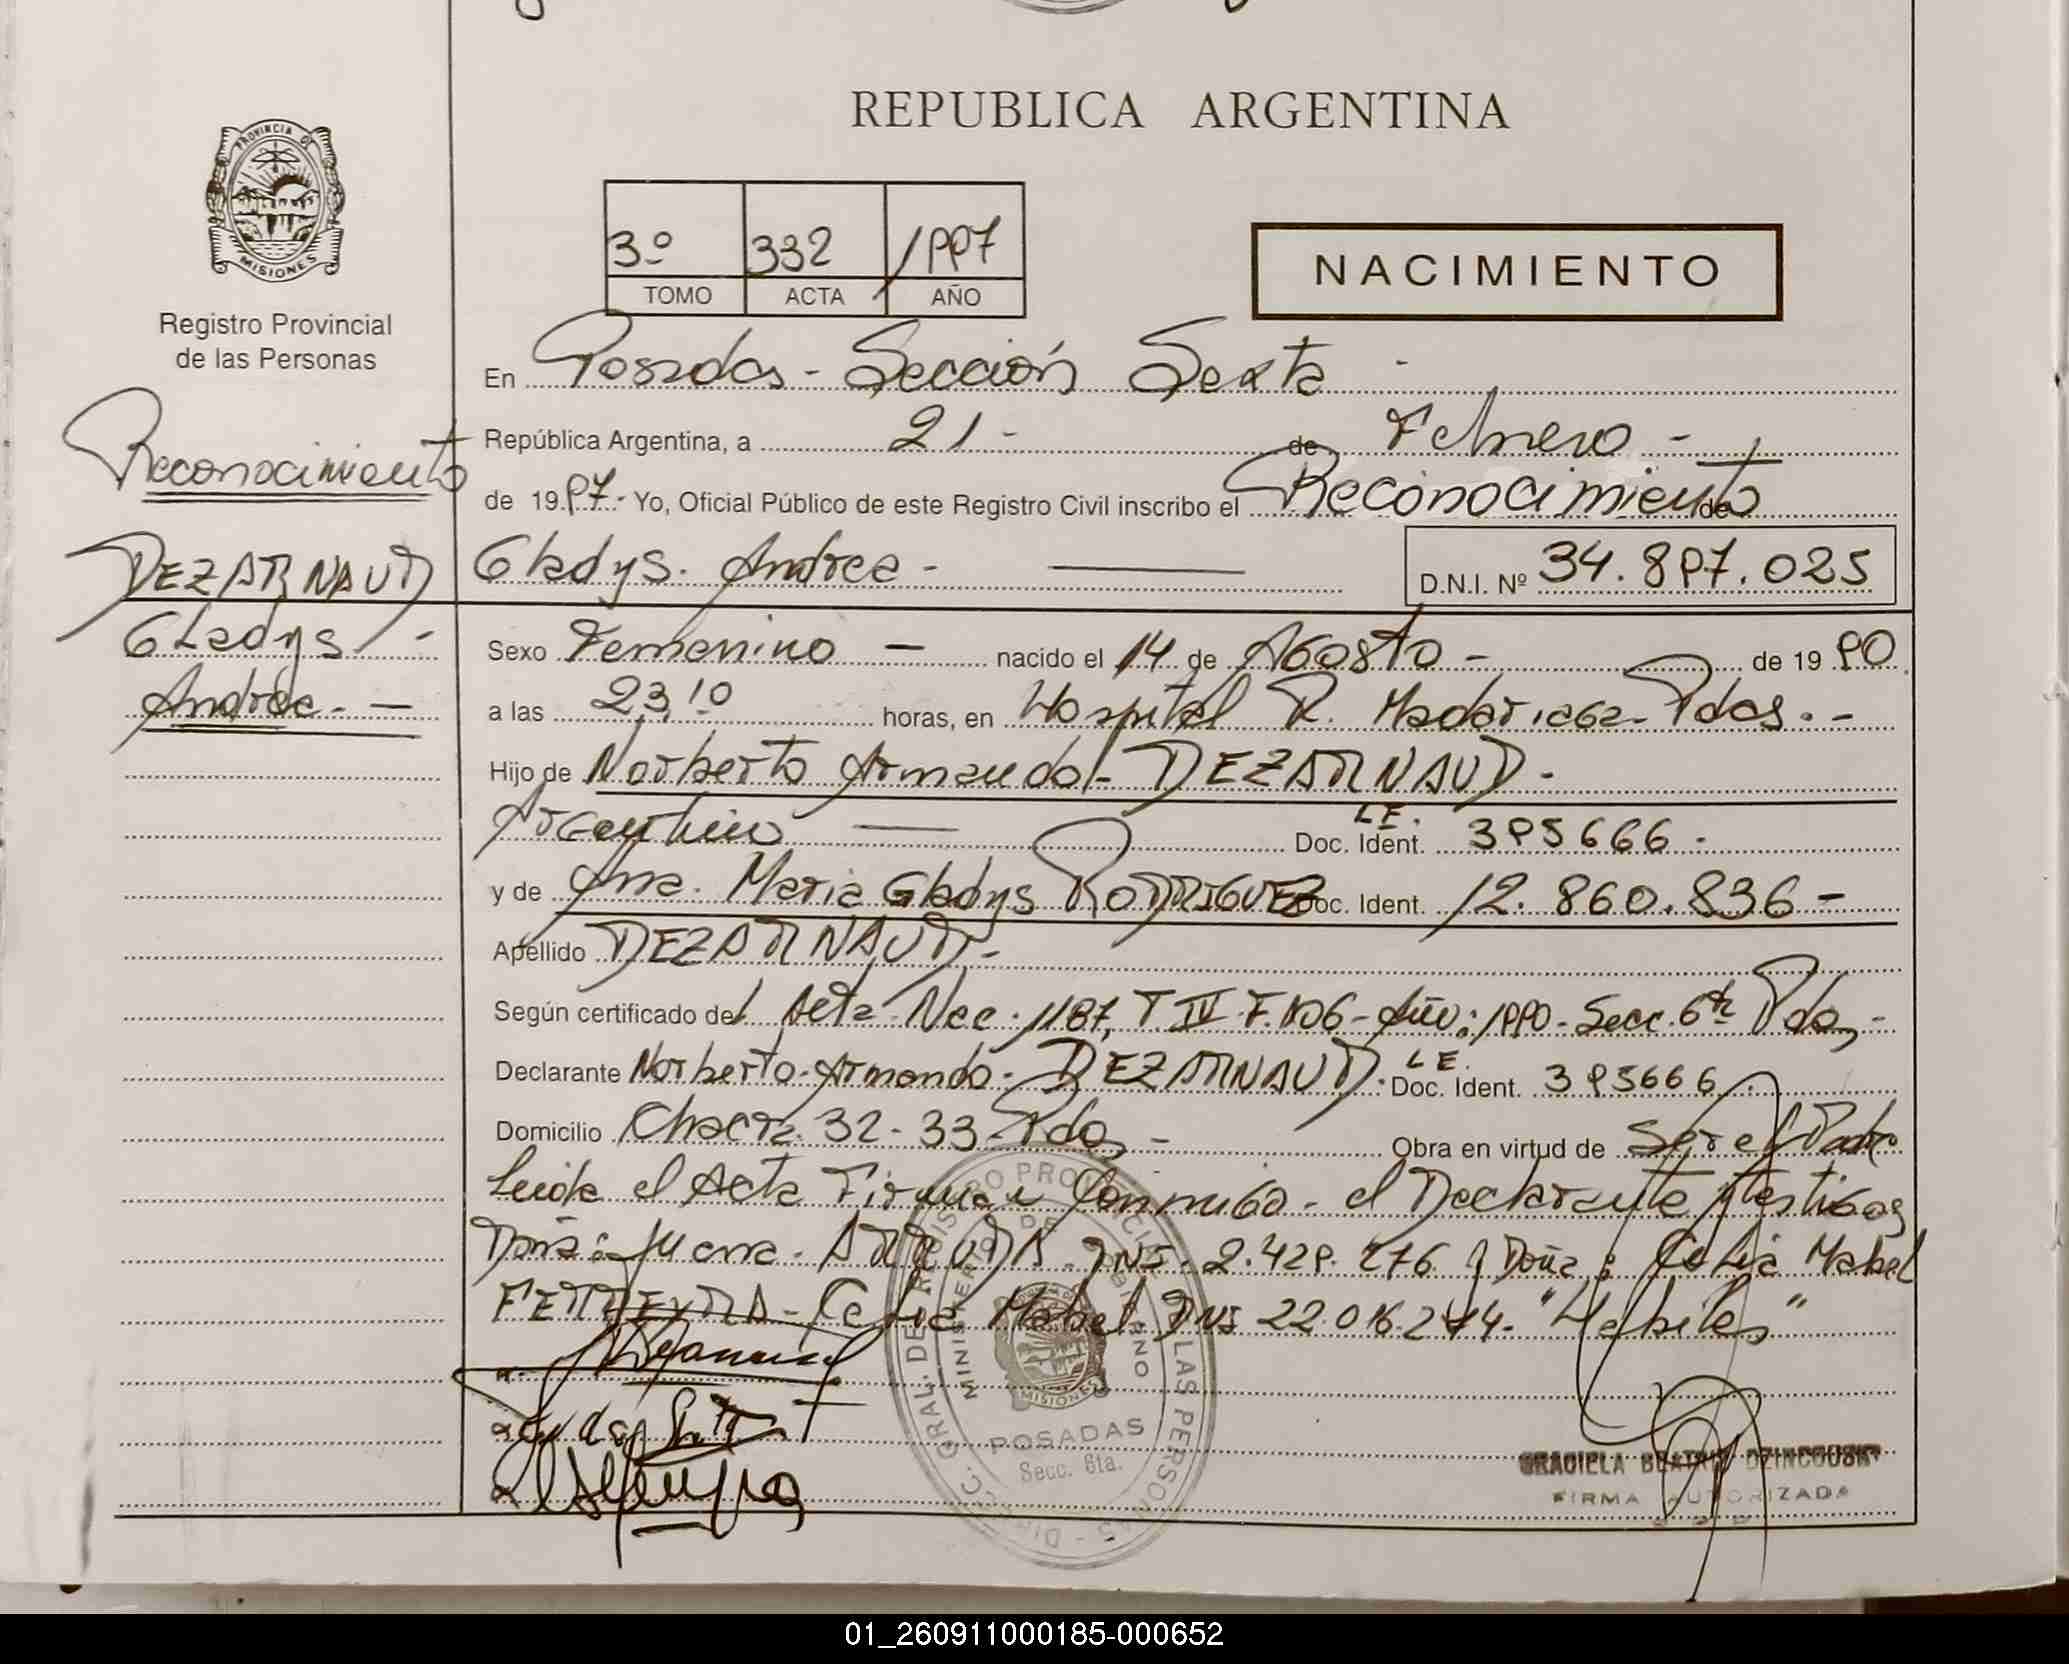 REPUBLICA ARGENTINA
PROVINCIA DE
MISIONES
Registro Provincial
de las Personas
3º 332 1997
TOMO ACTA AÑO
NACIMIENTO
En Posadas - Sección Sexta -
República Argentina, a 21 - de Febrero -
de 1997 - Yo, Oficial Público de este Registro Civil inscribo el Reconocimiento de
Gladys. Andrea - D.N.I. Nº 34.897.025
Reconocimiento
DEZARNAUD
Gladys -
Andrea - -
Sexo Femenino - nacido el 14 de Agosto - de 1990
a las 23,10 horas, en Hospital R. Madariaga - Pdas. -
Hijo de Norberto Armando - DEZARNAUD -
Argentino - Doc. Ident. L.E. 395666 -
y de Ana. Maria Gladys RODRIGUEZ Doc. Ident. 12.860.836 -
Apellido DEZARNAUD -
Según certificado del Acta Nac. 1187, T. IV - F. 106 - Año: 1990 - Secc. 6ta Pdas -
Declarante Norberto - Armando - DEZARNAUD. Doc. Ident. L.E. 395666
Domicilio Chacra 32 - 33 - Pdas - Obra en virtud de ser el Padre
Leida el Acta Firman Conmigo - el Declarante y testigos
Doña: Juana. DNI. 2.429.276 y Doña: Celia Mabel
FERREYRA - Celia Mabel DNI 22.016.274. "Habiles"
DIRECC. GRAL. DE REGISTRO PROVINCIAL DE LAS PERSONAS
MINISTERIO DE GOBIERNO
MISIONES
POSADAS
Secc. 6ta.
GRACIELA BEATRIZ
FIRMA AUTORIZADA
01_260911000185-000652